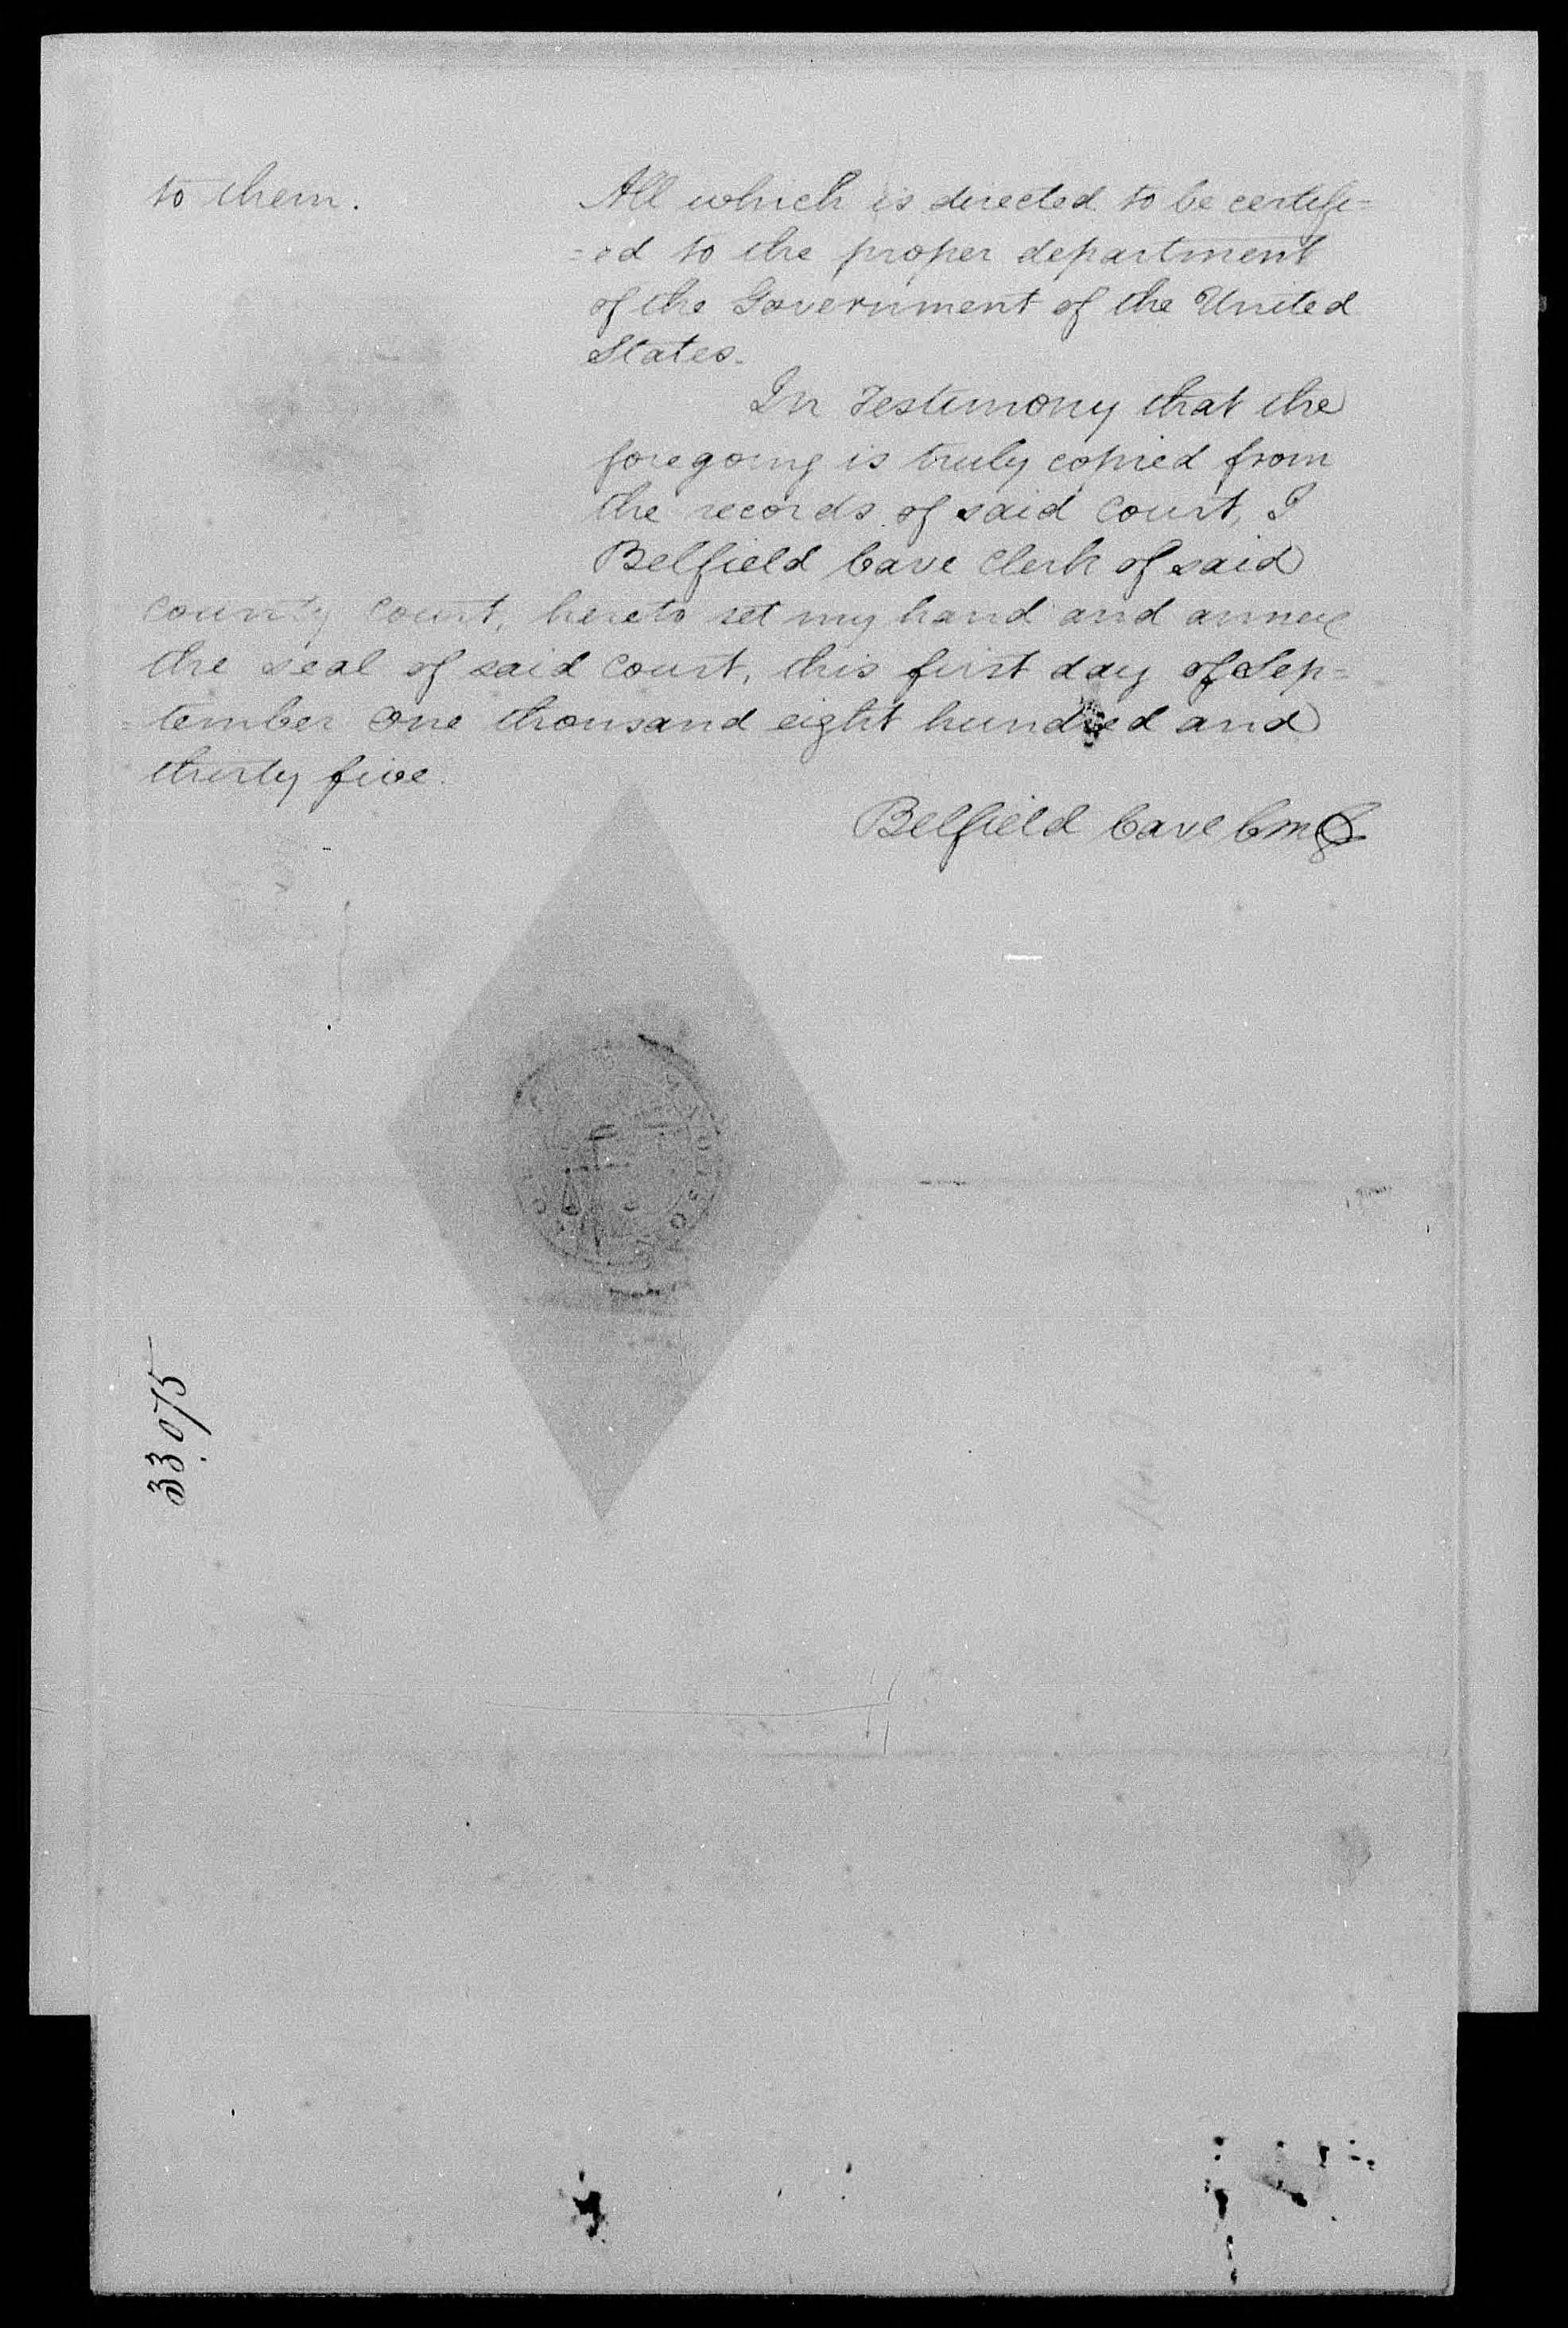 to them. All which is directed to be certifi=
=ed to the proper department
of the Government of the United
States.
In Testimony that the
foregoing is truly copied from
the records of said Court, I
Belfield Cave Clerk of said
County Court, hereto set my hand and annex
the seal of said Court, this first day of Sep=
=tember one thousand eight hundred and
thirty five.
Belfield Cave CMC
33075